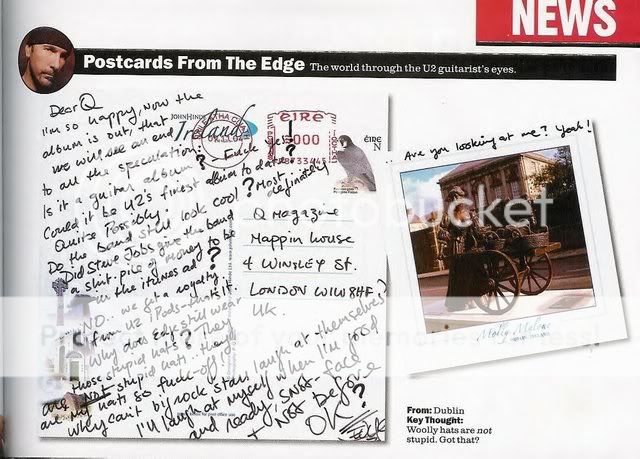 NEWS
Postcards From The Edge The world through the U2 guitarist's eyes.
Dear Q
I'm so happy, now the
album is out, that
we will see an end
to all the speculation.
Is it a guitar album? Fuck yes!
Could it be U2's finest album to date?
Quite Possibly.
Do the band still look cool? Most definately
Did Steve Jobs give the band
a shit-pile of money to be
in the itunes ad?
NO.. we get a royalty
from U2 iPods - that's it.
Why does edge still wear
those stupid hats? They
are NOT stupid hats.. they
are my hats so fuck-off!?
Why can't big rock stars laugh at themselves?
I'll laugh at myself when I'm good
and ready, SNOT-face
+ NOT before
OK?
Edge
JOHN HINDE
Ireland
EIRE
000
éire
N
Q Magazine
Mappin House
4 WINSLEY St.
LONDON W1W 8HF
UK.
Are you looking at me? Yeah!
Molly Malone
photobucket
From: Dublin
Key Thought:
Woolly hats are not
stupid. Got that?